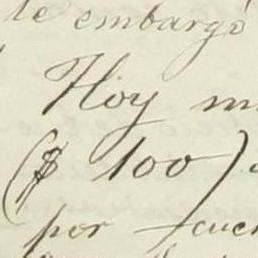 te embargó
Hoy
($ 100)
por